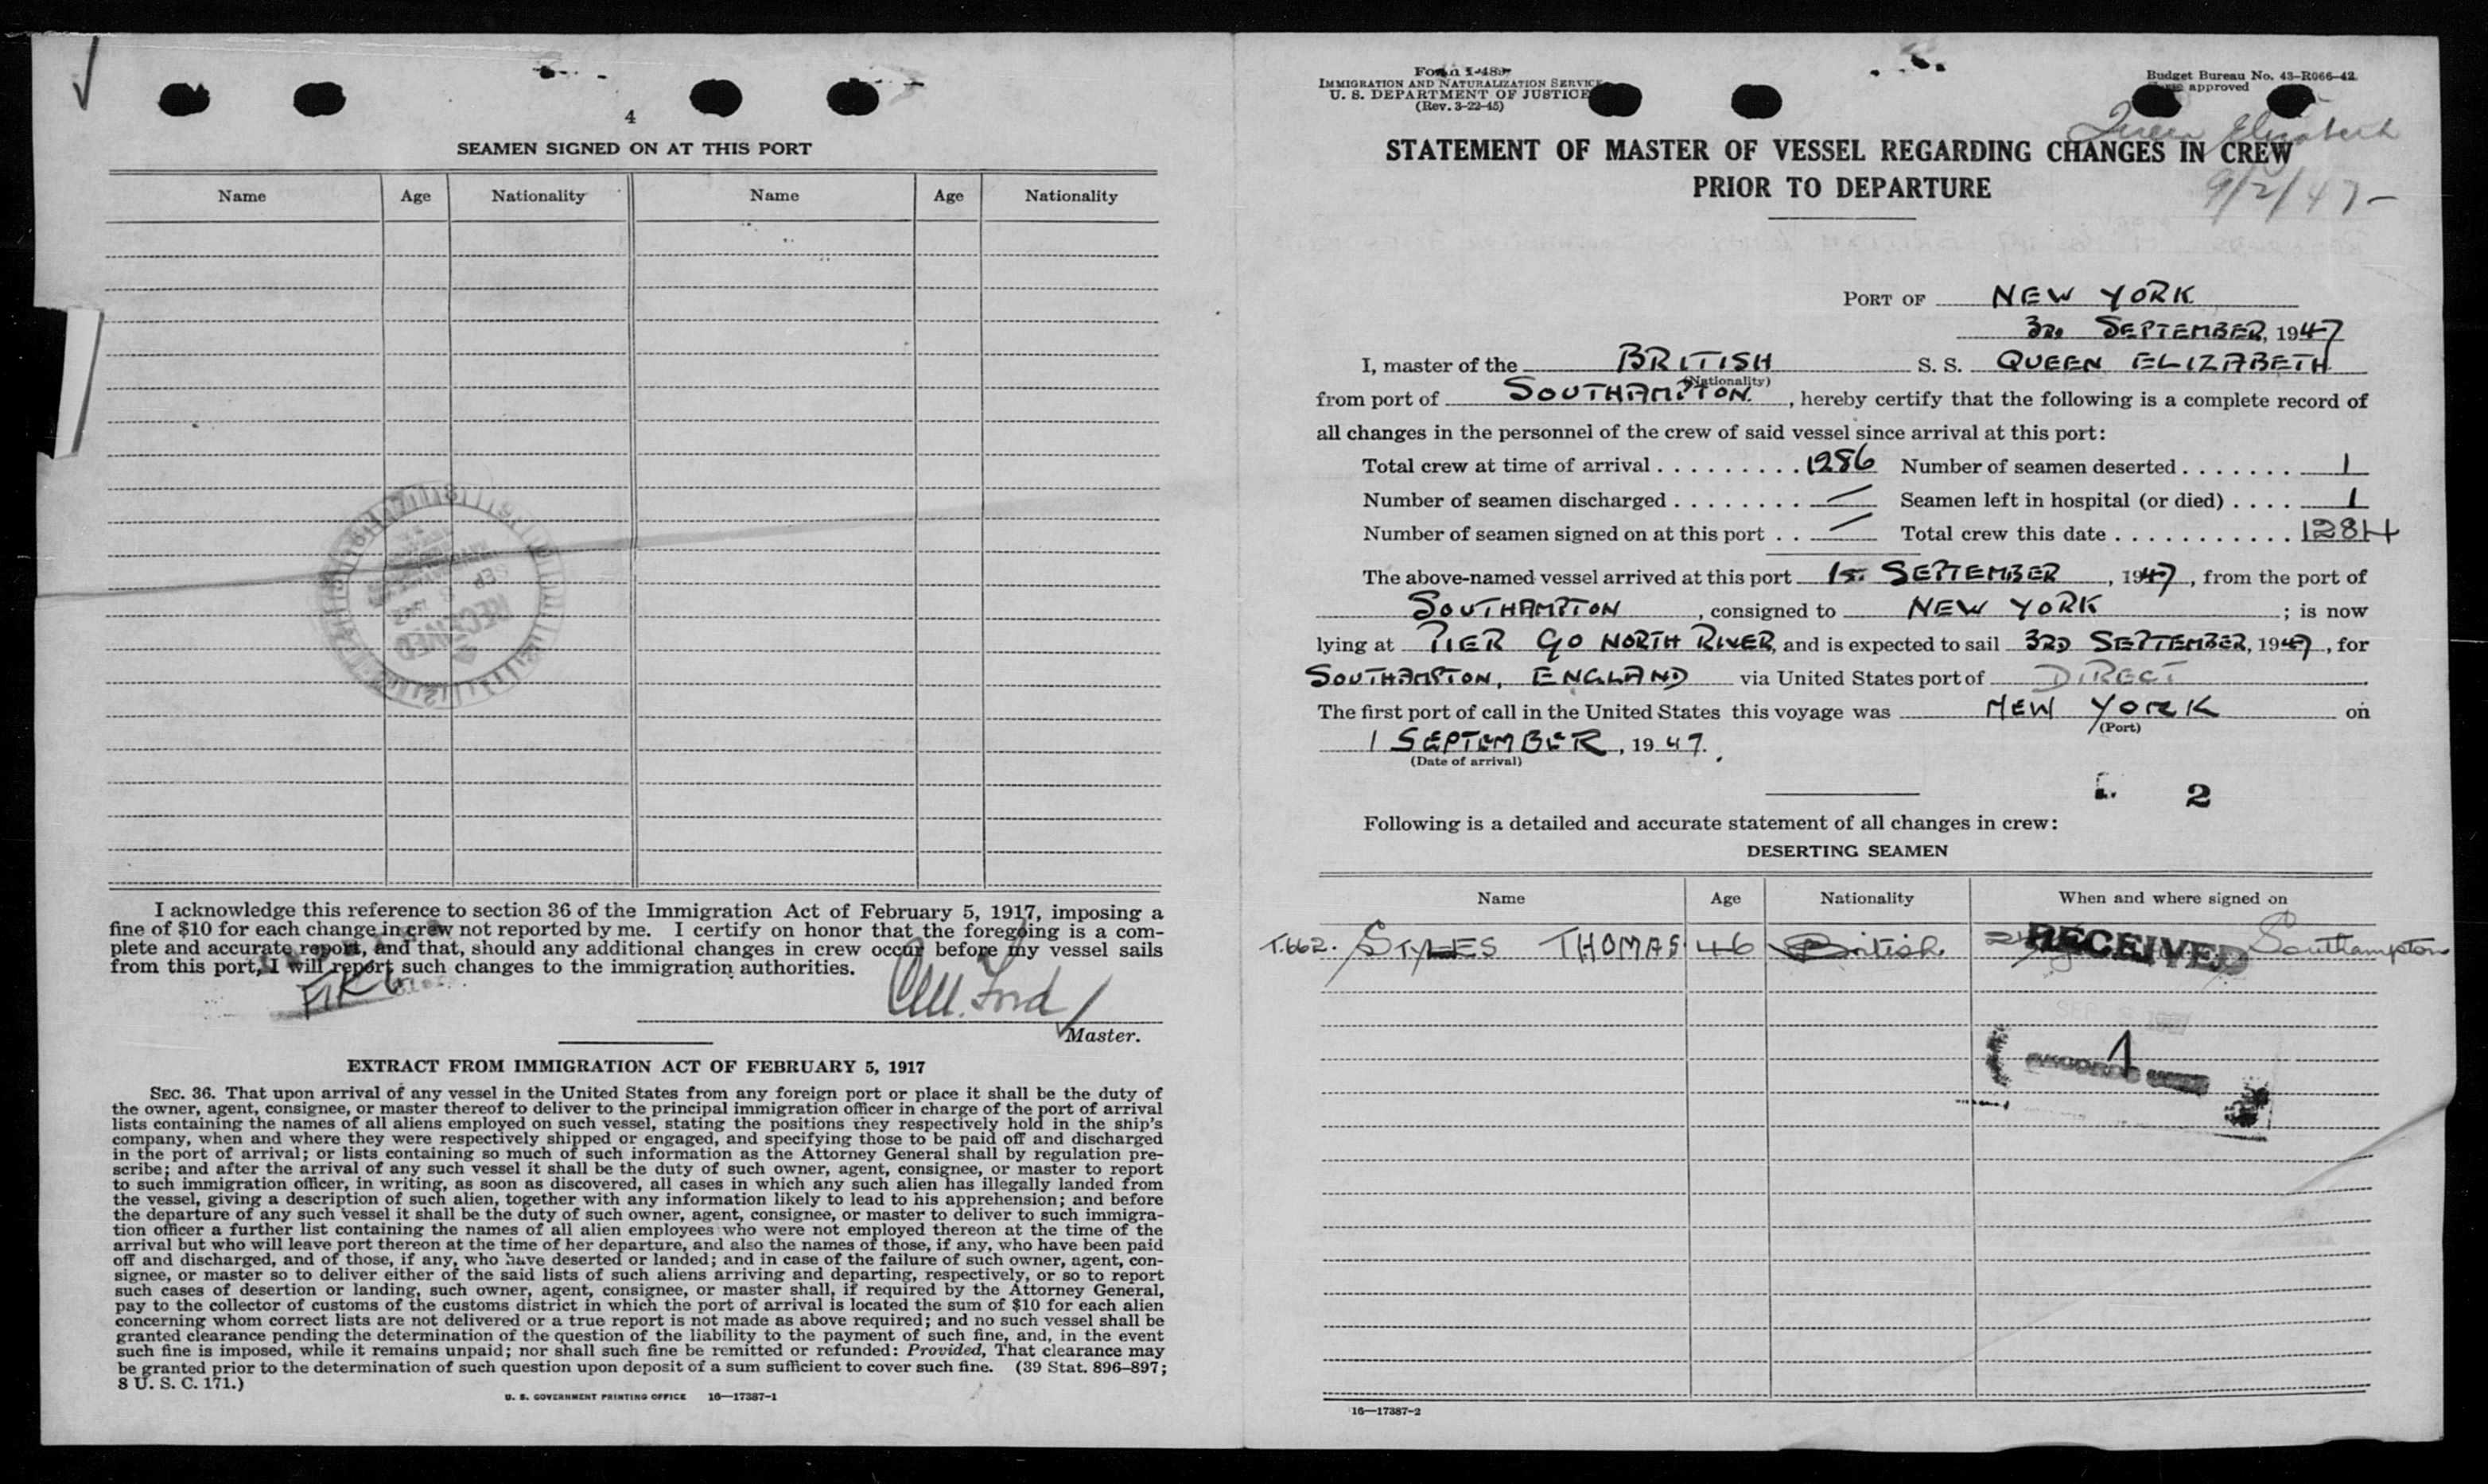 4
SEAMEN SIGNED ON AT THIS PORT
Name Age Nationality Name Age Nationality
RECEIVED
SEP
I acknowledge this reference to section 36 of the Immigration Act of February 5, 1917, imposing a
fine of $10 for each change in crew not reported by me. I certify on honor that the foregoing is a com-
plete and accurate report, and that, should any additional changes in crew occur before my vessel sails
from this port, I will report such changes to the immigration authorities.
Ford
Master.
EXTRACT FROM IMMIGRATION ACT OF FEBRUARY 5, 1917
SEC. 36. That upon arrival of any vessel in the United States from any foreign port or place it shall be the duty of
the owner, agent, consignee, or master thereof to deliver to the principal immigration officer in charge of the port of arrival
lists containing the names of all aliens employed on such vessel, stating the positions they respectively hold in the ship's
company, when and where they were respectively shipped or engaged, and specifying those to be paid off and discharged
in the port of arrival; or lists containing so much of such information as the Attorney General shall by regulation pre-
scribe; and after the arrival of any such vessel it shall be the duty of such owner, agent, consignee, or master to report
to such immigration officer, in writing, as soon as discovered, all cases in which any such alien has illegally landed from
the vessel, giving a description of such alien, together with any information likely to lead to his apprehension; and before
the departure of any such vessel it shall be the duty of such owner, agent, consignee, or master to deliver to such immigra-
tion officer a further list containing the names of all alien employees who were not employed thereon at the time of the
arrival but who will leave port thereon at the time of her departure, and also the names of those, if any, who have been paid
off and discharged, and of those, if any, who have deserted or landed; and in case of the failure of such owner, agent, con-
signee, or master so to deliver either of the said lists of such aliens arriving and departing, respectively, or so to report
such cases of desertion or landing, such owner, agent, consignee, or master shall, if required by the Attorney General,
pay to the collector of customs of the customs district in which the port of arrival is located the sum of $10 for each alien
concerning whom correct lists are not delivered or a true report is not made as above required; and no such vessel shall be
granted clearance pending the determination of the question of the liability to the payment of such fine, and, in the event
such fine is imposed, while it remains unpaid; nor shall such fine be remitted or refunded: Provided, That clearance may
be granted prior to the determination of such question upon deposit of a sum sufficient to cover such fine. (39 Stat. 896–897;
8 U. S. C. 171.)
U. S. GOVERNMENT PRINTING OFFICE 16—17387-1
Form I-489
IMMIGRATION AND NATURALIZATION SERVICE
U. S. DEPARTMENT OF JUSTICE
(Rev. 3-22-45)
Budget Bureau No. 43-R066-42
approved
Queen Elizabeth
STATEMENT OF MASTER OF VESSEL REGARDING CHANGES IN CREW
PRIOR TO DEPARTURE
9/2/47-
PORT OF NEW YORK
3RD SEPTEMBER, 1947
I, master of the BRITISH S. S. QUEEN ELIZABETH
(Nationality)
from port of SOUTHAMPTON, hereby certify that the following is a complete record of
all changes in the personnel of the crew of said vessel since arrival at this port:
Total crew at time of arrival 1286 Number of seamen deserted 1
Number of seamen discharged — Seamen left in hospital (or died) 1
Number of seamen signed on at this port — Total crew this date 1284
The above-named vessel arrived at this port 1st SEPTEMBER, 1947, from the port of
SOUTHAMPTON, consigned to NEW YORK; is now
lying at PIER 90 NORTH RIVER, and is expected to sail 3RD SEPTEMBER, 1947, for
SOUTHAMPTON, ENGLAND via United States port of DIRECT
The first port of call in the United States this voyage was NEW YORK on
(Port)
1 SEPTEMBER, 1947.
(Date of arrival)
2
Following is a detailed and accurate statement of all changes in crew:
DESERTING SEAMEN
Name Age Nationality When and where signed on
T.662. STYLES THOMAS 46 British RECEIVED Southampton
SEP
1
16—17387-2